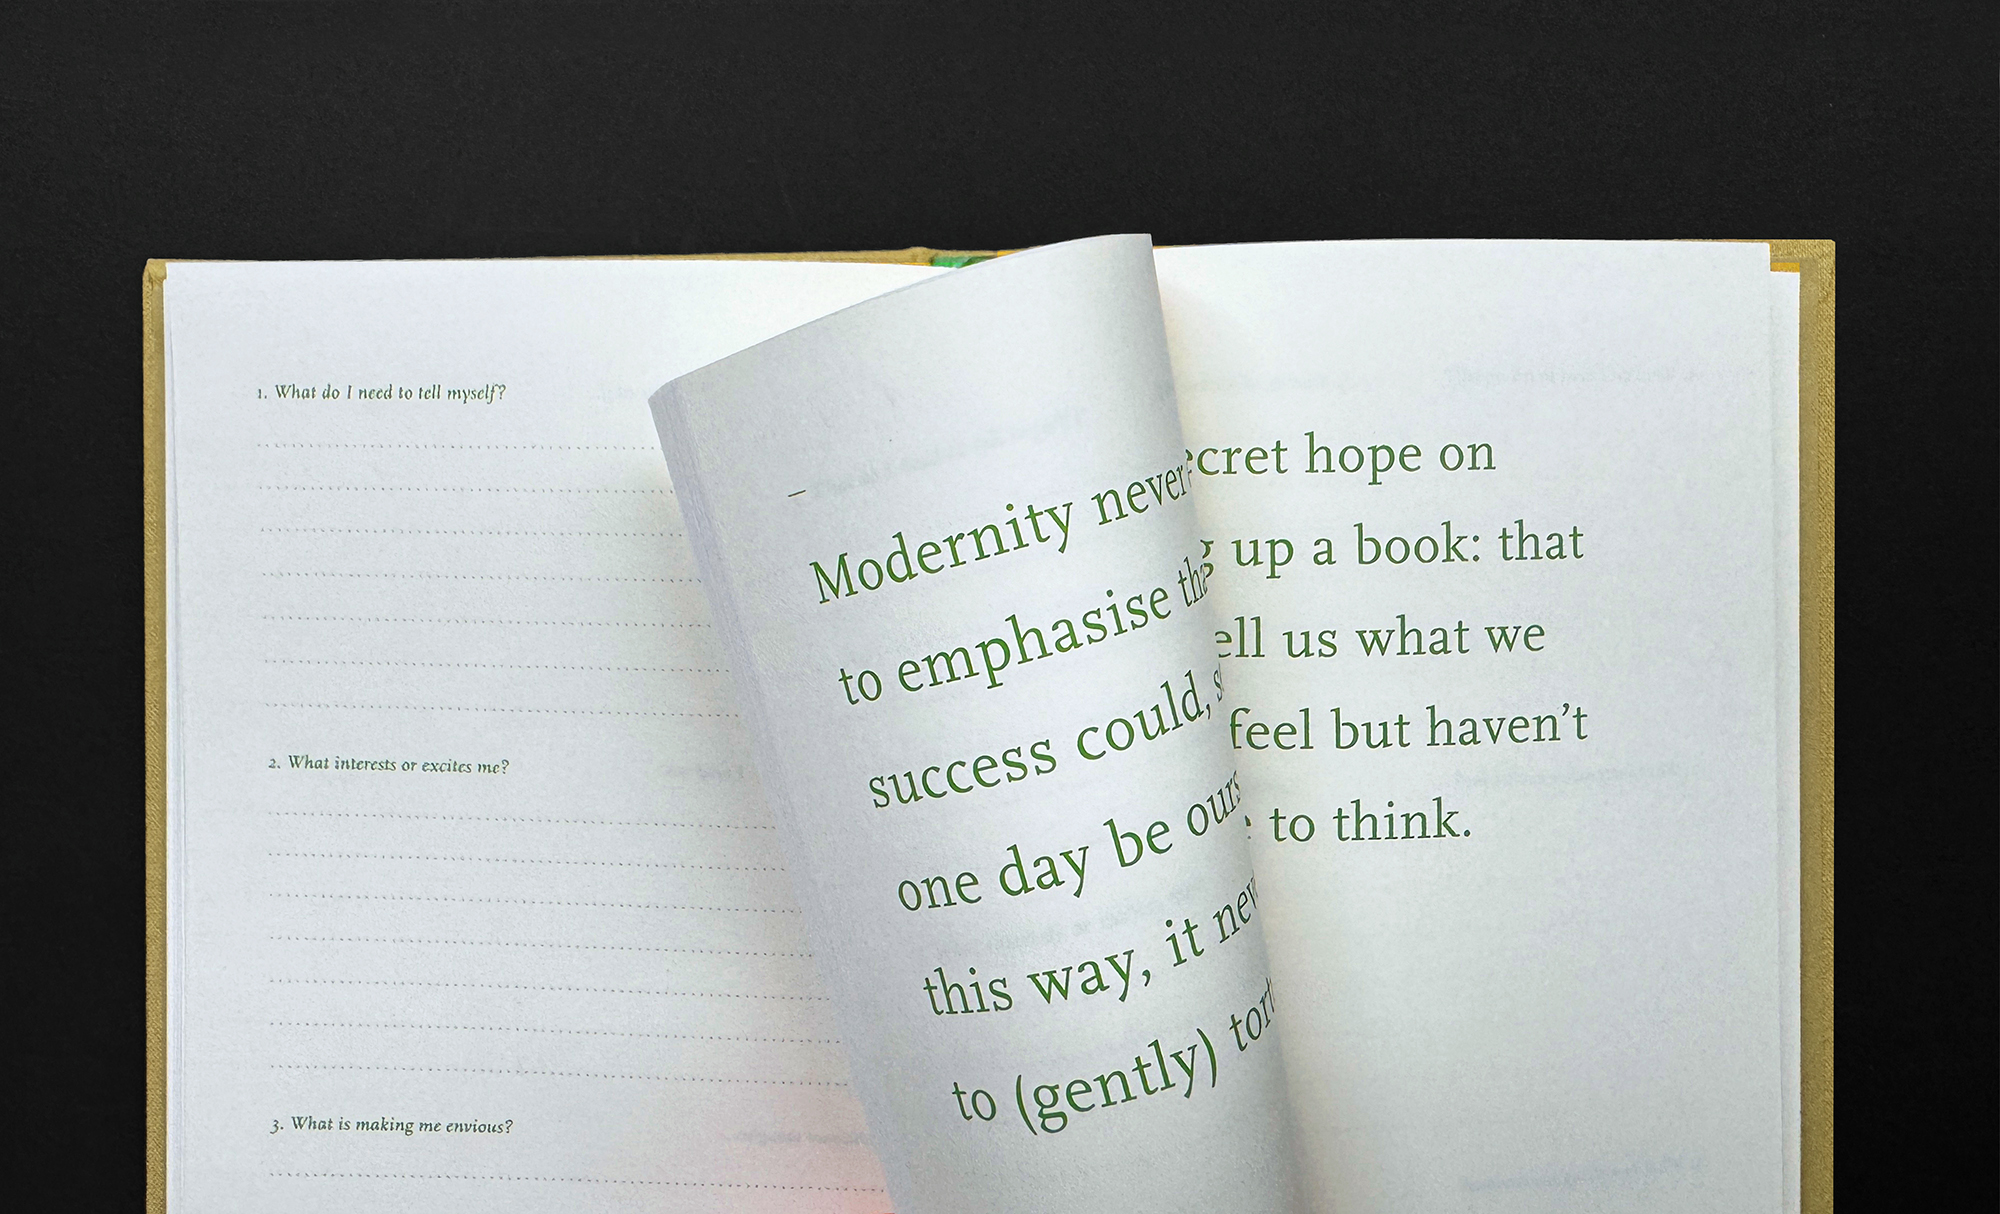 1. What do I need to tell myself?
2. What interests or excites me?
3. What is making me envious?
–
Modernity never
to emphasise
success could,
one day be
this way, it
to (gently)
hope on
up a book: that
us what we
feel but haven’t
to think.